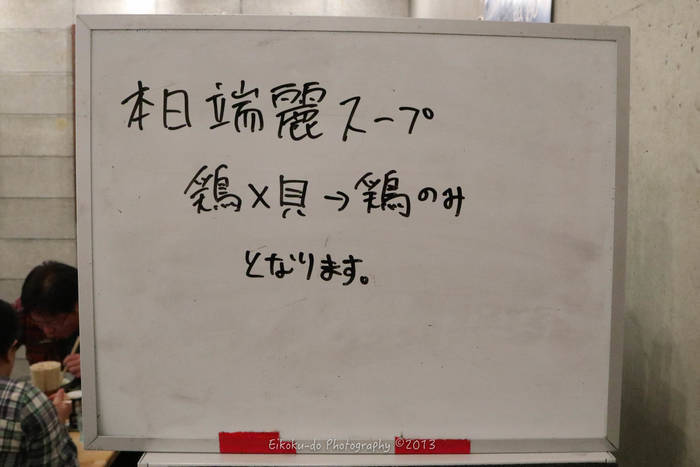 本日端麗スープ
鶏×貝→鶏のみ
となります。
Eikoku-do Photography ©2013